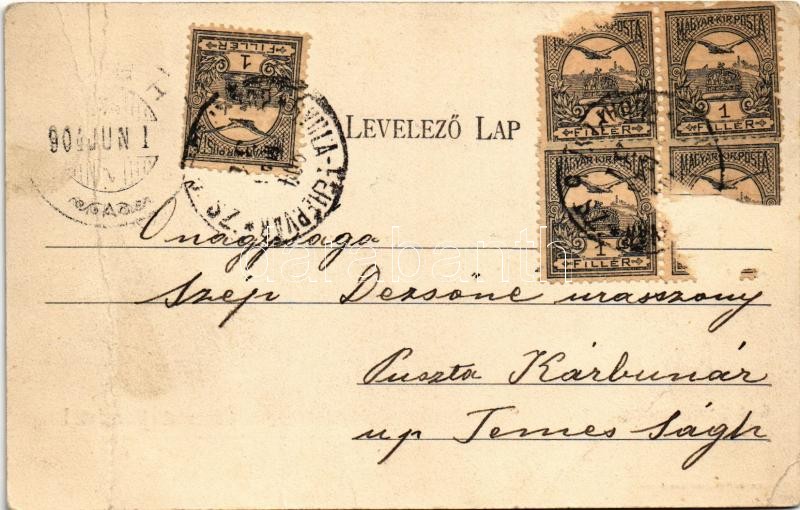 MAGYAR·KIR·POSTA
1
FILLÉR
MAGYAR·KIR·POSTA
1
FILLÉR
MAGYAR·KIR·POSTA
MAGYAR·KIR·POSTA
1
FILLÉR
1
FILLÉR
906 JUN 1
A
LEVELEZŐ LAP
darabanth
Önagysága
Szép Dezsőné urasszony
Puszta Kárbunár
up Temes Ságh